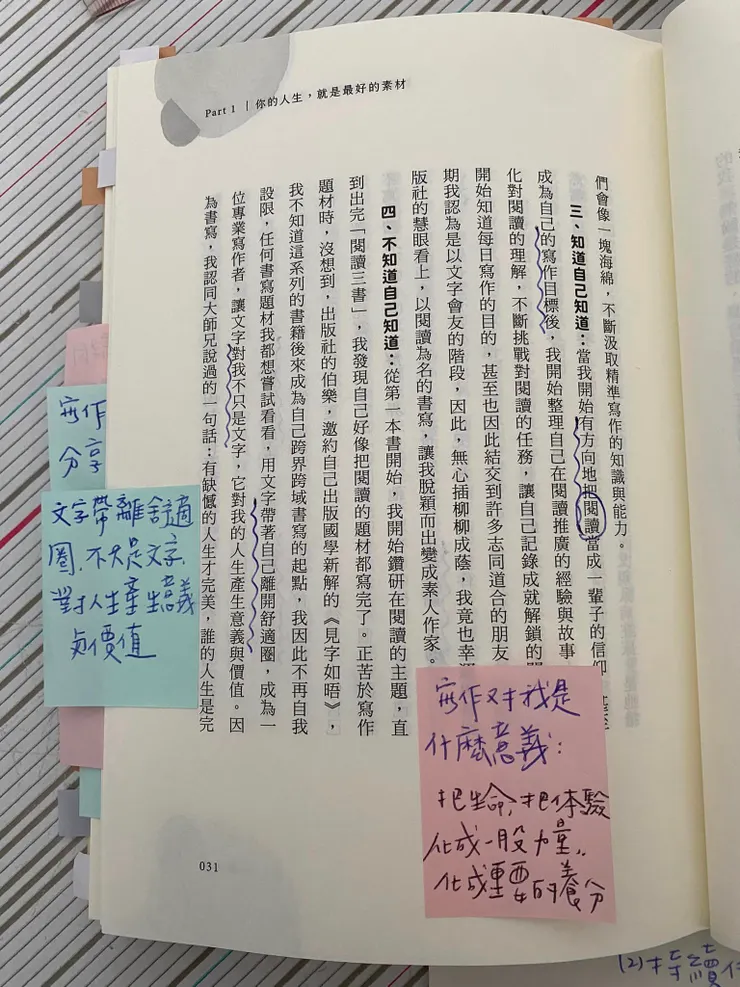 Part 1 | 你的人生，就是最好的素材
們會像一塊海綿，不斷汲取精準寫作的知識與能力。
三、知道自己知道：當我開始有方向地把閱讀當成一輩子的信仰
成為自己的寫作目標後，我開始整理自己在閱讀推廣的經驗與故事
化對閱讀的理解，不斷挑戰對閱讀的任務，讓自己記錄成就解鎖的
開始知道每日寫作的目的，甚至也因此結交到許多志同道合的朋友
期我認為是以文字會友的階段，因此，無心插柳柳成蔭，我竟也幸
版社的慧眼看上，以閱讀為名的書寫，讓我脫穎而出變成素人作家。
四、不知道自己知道：從第一本書開始，我開始鑽研在閱讀的主題，直
到出完「閱讀三書」，我發現自己好像把閱讀的題材都寫完了。正苦於寫作
題材時，沒想到，出版社的伯樂，邀約自己出版國學新解的《見字如晤》，
我不知道這系列的書籍後來成為自己跨界跨域書寫的起點，我因此不再自我
設限，任何書寫題材我都想嘗試看看，用文字帶著自己離開舒適圈，成為一
位專業寫作者，讓文字對我不只是文字，它對我的人生產生意義與價值。因
為書寫，我認同大師兄說過的一句話：有缺憾的人生才完美，誰的人生是完
031
寫作
分享
文字帶離舒適
圈，不只是文字，
對人生產生意義
與價值
寫作对我是
什麼意義：
把生命，把体驗
化成一股力量，
化成重要的養分
(2)持續